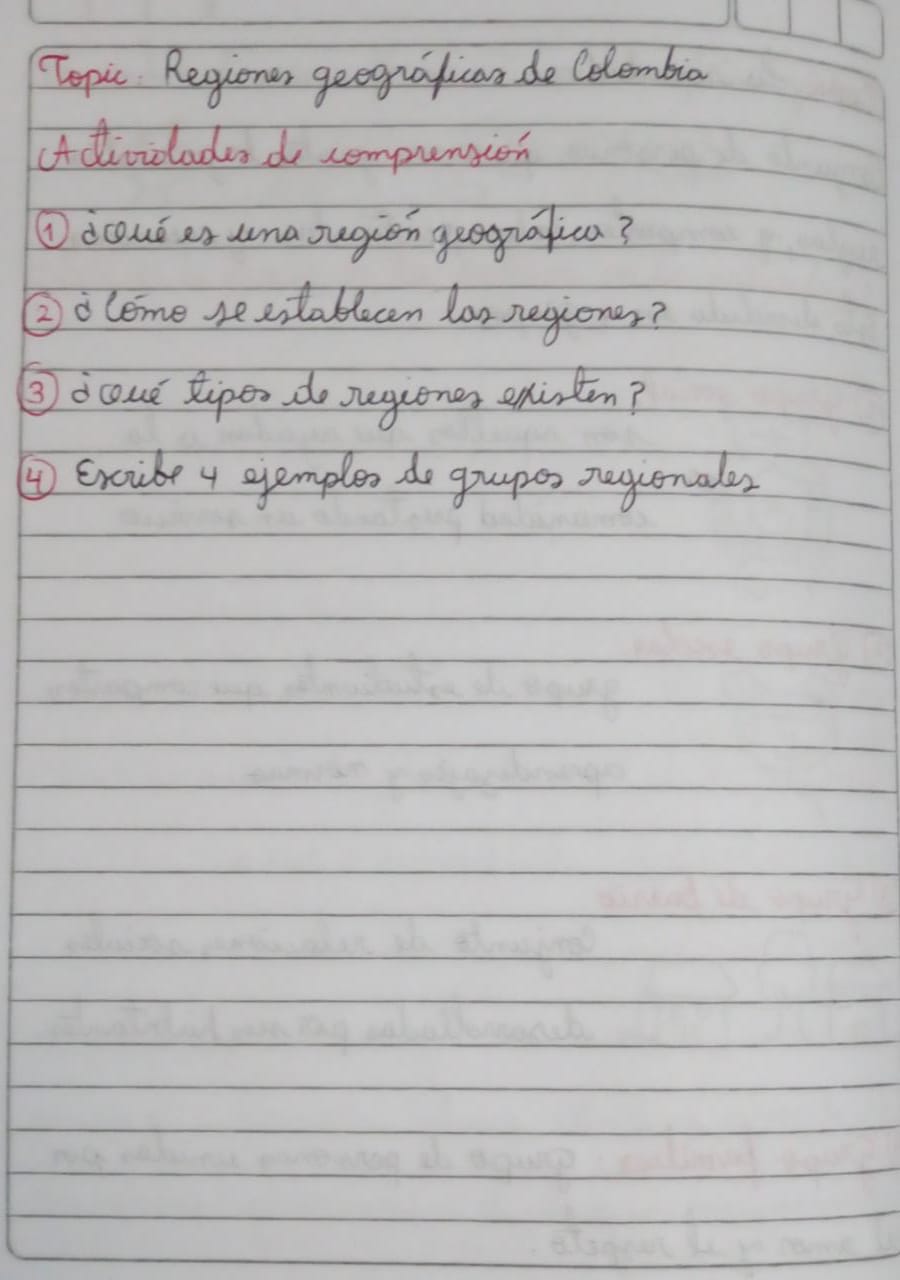 Topic: Regiones geográficas de Colombia
Actividades de comprensión
① ¿Qué es una región geográfica?
② ¿Cómo se establecen las regiones?
③ ¿Qué tipos de regiones existen?
④ Escribe 4 ejemplos de grupos regionales